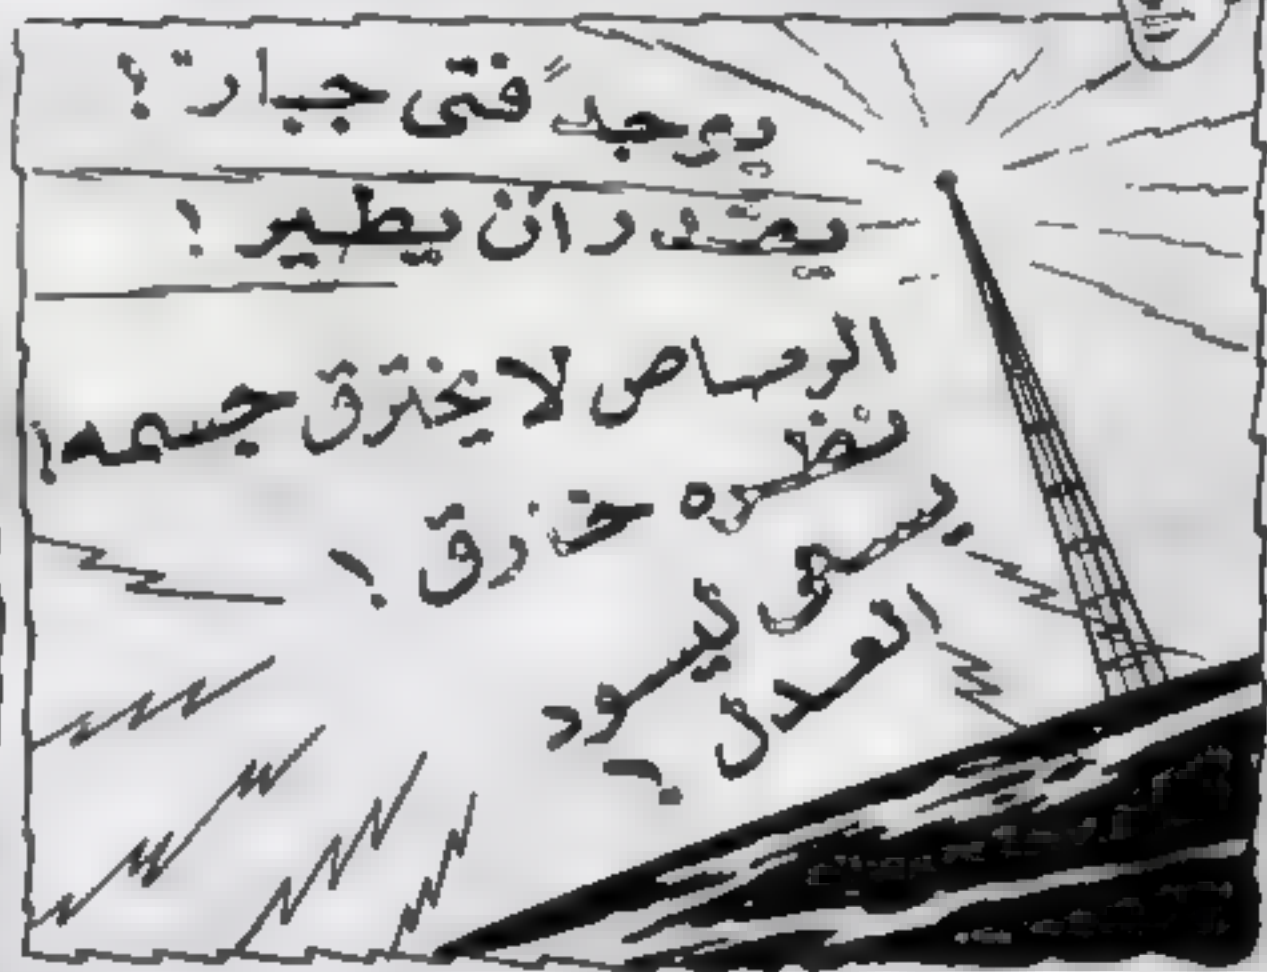 يوجد "فتى جبار" !
يقدر ان يطير !
الرصاص لا يخترق جسمه !
نظره خارق !
يسعى ليسود
العدل !